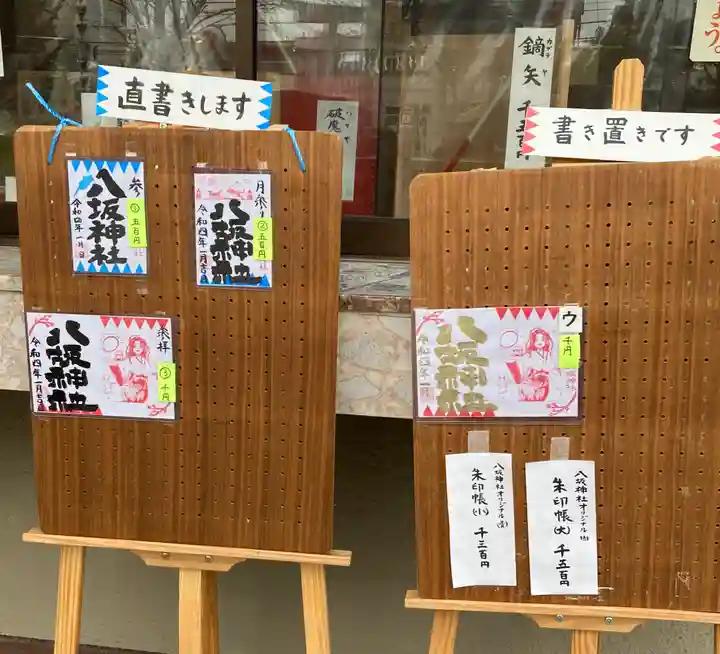 直書きします
参
①五百円
八坂神社
令和四年一月
月参り
②五百円
八坂神社
令和四年一月吉
参拝
③千円
八坂神社
令和四年一月吉
鏑矢
カブラヤ
破魔
書き置きです
ウ
千円
八坂神社
令和四年一月
八坂神社オリジナル
朱印帳(小) 千三百円
八坂神社オリジナル
朱印帳(大) 千五百円